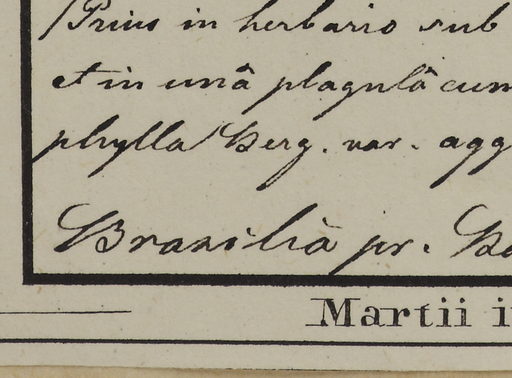 Prius in herbario sub
et in unâ plagulâ cum
phylla Berg. var. agg
Brasiliâ pr. Ba
Martii i